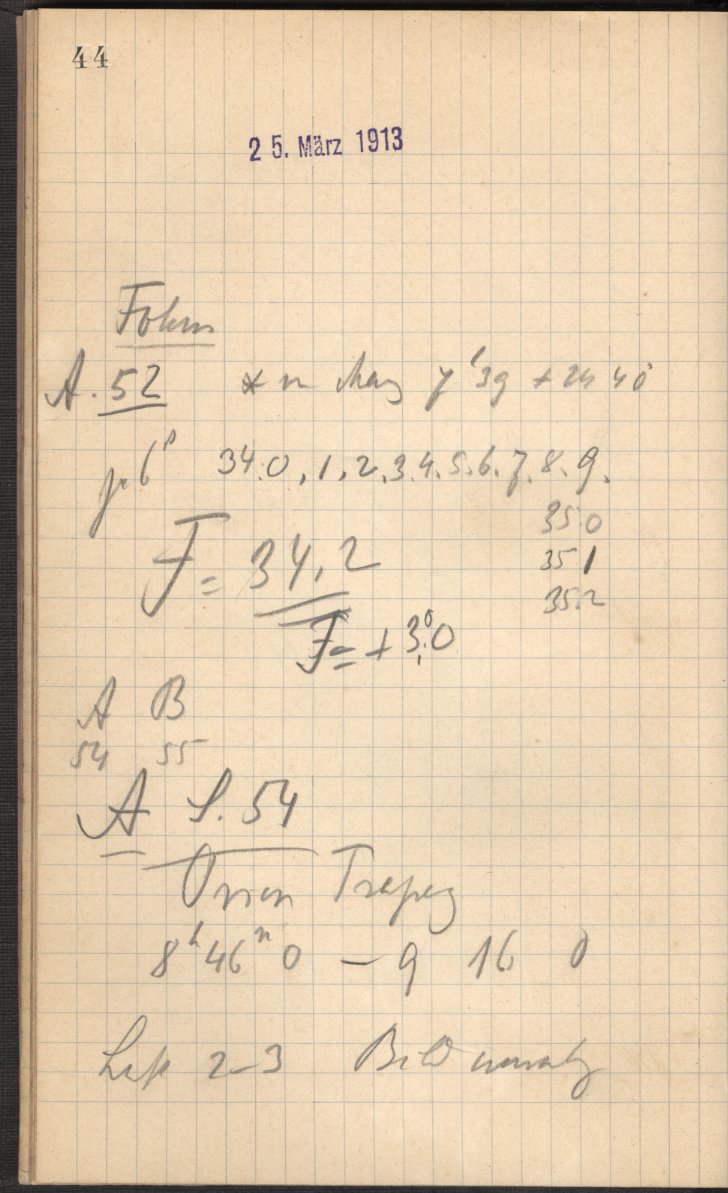 44
25. März 1913
Fokus
A. 52 * 7 39 + 24 40
je 6s 34.0, 1, 2, 3, 4, 5, 6, 7, 8, 9,
35.0
35 1
35.2
F = 34,2
F = + 3°.0
A B
54 55
A S. 54
Orion Trapez
8h 46m 0 – 9 16 0
Luft 2–3 Bild unruhig